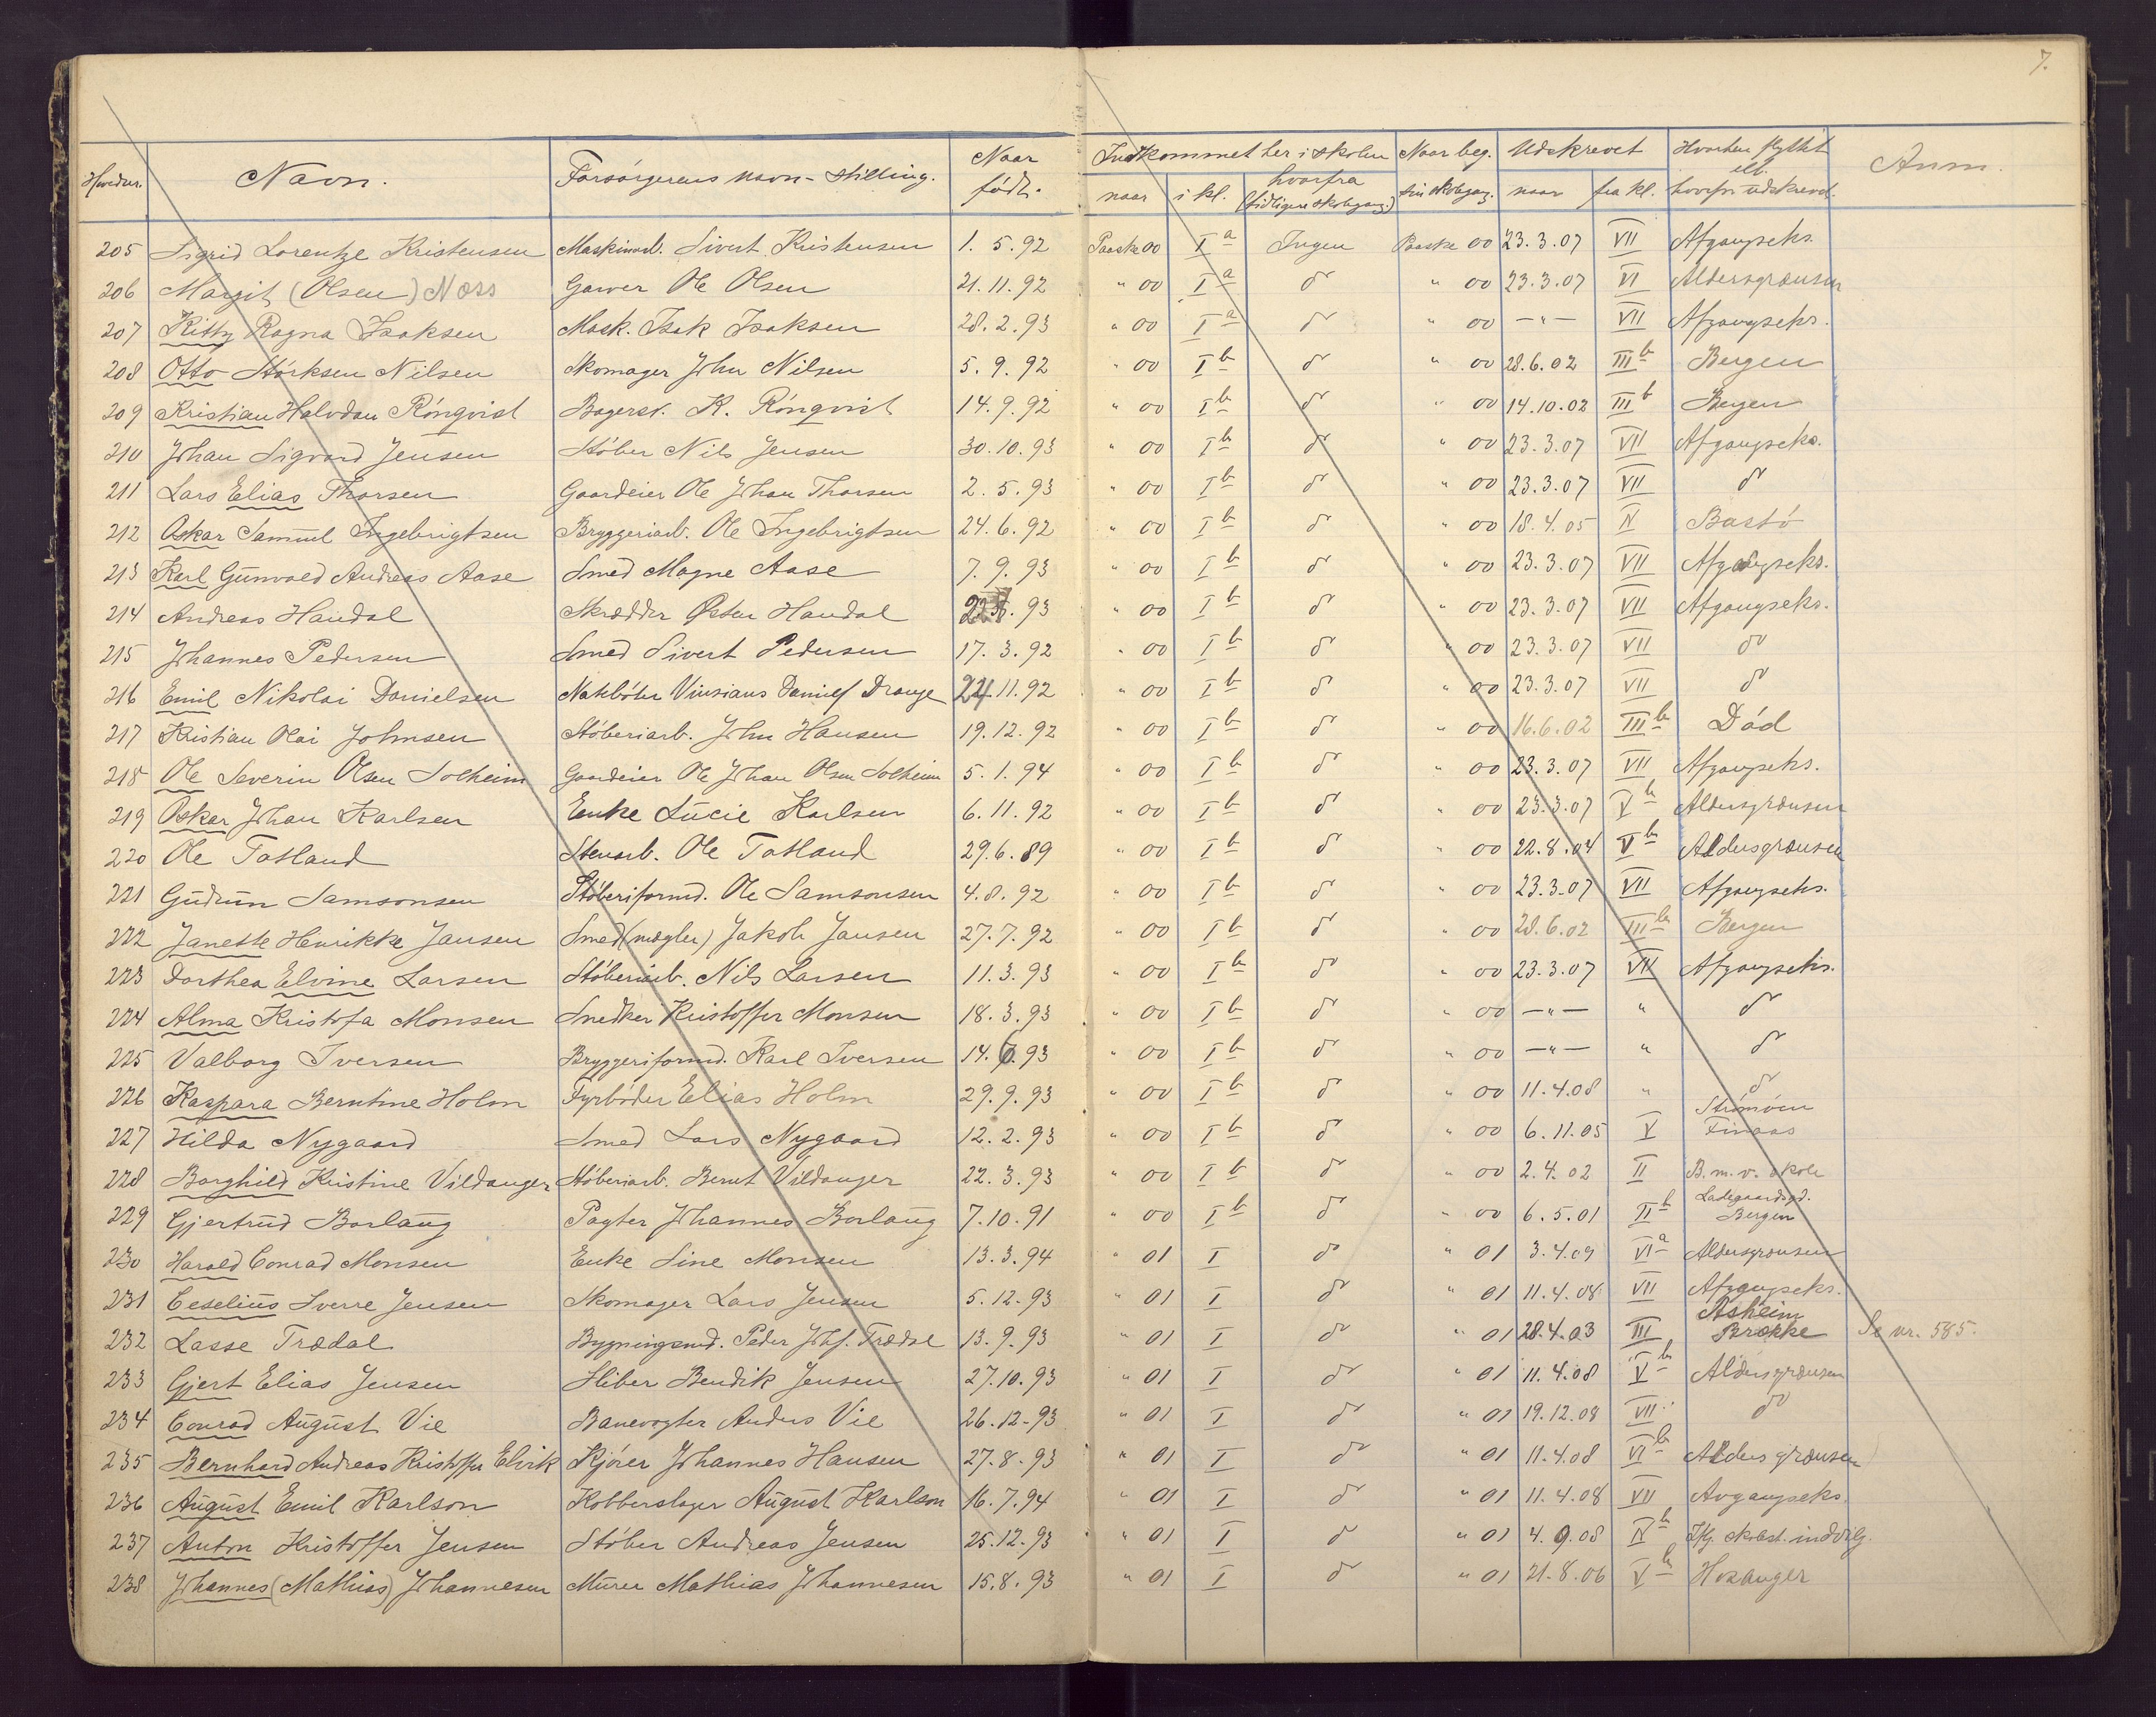 7.
Hovednr. Navn. Forsørgerens navn - stilling. Naar født. Indkommet her i skolen naar i kl. hvorfra (tidligere skolegang.) Naar beg. sin skolegang. Udskrevet naar fra kl. Hvorhen flyttet ell. hvorfor udskrevet. Anm.
205 Sigrid Lorentze Kristensen Maskinarb. Sivert Kristensen 1. 5. 92 Paaske 00 I a Ingen Paaske 00 23.3.07 VII Afgangseks.
206 Margit (Olsen) Næss Garver Ole Olsen 21. 11. 92 " 00 I a do " 00 23.3.07 VI Aldersgrænsen
207 Kitty Ragna Isaksen Mask. Isak Isaksen 28. 2. 93 " 00 I a do " 00 — " — VII Afgangseks.
208 Otto Størksen Nilsen Skomager John Nilsen 5. 9. 92 " 00 I b do " 00 28.6.02 III b Bergen
209 Kristian Halvdan Rönqvist Bagersv. K. Rönqvist 14. 9. 92 " 00 I b do " 00 14.10.02 III b Bergen
210 Johan Sigvard Jensen Støber Nils Jensen 30. 10. 93 " 00 I b do " 00 23.3.07 VII Afgangseks.
211 Lars Elias Thorsen Gaardeier Ole Johan Thorsen 2. 5. 93 " 00 I b do " 00 23.3.07 VII do
212 Oskar Samuel Ingebrigtsen Bryggeriarb. Ole Ingebrigtsen 24. 6. 92 " 00 I b do " 00 18.4.05 IV Bastø
213 Karl Gunvald Andreas Aase Smed Magne Aase 7. 9. 93 " 00 I b do " 00 23.3.07 VII Afgangseks.
214 Andreas Haudal Skrædder Østen Haudal 93 " 00 I b do " 00 23.3.07 VII Afgangseks.
215 Johannes Pedersen Smed Sivert Pedersen 17. 3. 92 " 00 I b do " 00 23.3.07 VII do
216 Emil Nikolai Danielsen Natebøter Daniels Drange 24. 11. 92 " 00 I b do " 00 23.3.07 VII do
217 Kristian Olai Johnsen Støberiarb. John Hansen 19. 12. 92 " 00 I b do " 00 16.6.02 III b Død
218 Ole Severin Olsen Solheim Gaardeier Ole Johan Olsen Solheim 5. 1. 94 " 00 I b do " 00 23.3.07 VII Afgangseks.
219 Oskar Johan Karlsen Enke Lucie Karlsen 6. 11. 92 " 00 I b do " 00 23.3.07 V b Aldersgrænsen
220 Ole Totland Stenarb. Ole Totland 29. 6. 89 " 00 I b do " 00 22.8.04 V b Aldersgrænsen
221 Gudrun Samsonsen Støberiformd. Ole Samsonsen 4. 8. 92 " 00 I b do " 00 23.3.07 VII Afgangseks.
222 Janette Henrikke Jansen Smed (mægler) Jakob Jansen 27. 7. 92 " 00 I b do " 00 28.6.02 III b Bergen
223 Dorthea Elvine Larsen Støberiarb. Nils Larsen 11. 3. 93 " 00 I b do " 00 23.3.07 VII Afgangseks.
224 Alma Kristofa Monsen Snedker Kristoffer Monsen 18. 3. 93 " 00 I b do " 00 — " — " do
225 Valborg Iversen Bryggeriformd. Karl Iversen 14. 6. 93 " 00 I b do " 00 — " — " do
226 Kaspara Berntine Holm Fyrbøder Elias Holm 29. 9. 93 " 00 I b do " 00 11.4.08 " do
227 Hilda Nygaard Smed Lars Nygaard 12. 2. 93 " 00 I b do " 00 6.11.05 V Strömöen Finaas
228 Borghild Kristine Vildanger Støberiarb. Bernt Vildanger 22. 3. 93 " 00 I b do " 00 2.4.02 II B. m. v. skole
229 Gjertrud Borlaug Pagter Johannes Borlaug 7. 10. 91 " 00 I b do " 00 6.5.01 II b Ladegaardsgd. Bergen
230 Harald Conrad Monsen Enke Sine Monsen 13. 3. 94 " 01 I do " 01 3.4.09 VI a Aldersgrænsen
231 Ceselius Sverre Jensen Skomager Lars Jensen 5. 12. 93 " 01 I do " 01 11.4.08 VII Afgangseks.
232 Lasse Trædal Bygningssnd. Peder Johs. Trædal 13. 9. 93 " 01 I do " 01 28.4.03 III Askeim Brække Se nr. 585.
233 Gjert Elias Jensen Sliber Bendik Jensen 27. 10. 93 " 01 I do " 01 11.4.08 V b Aldersgrænsen
234 Conrad August Vie Banevogter Anders Vie 26. 12. 93 " 01 I do " 01 19.12.08 VII do
235 Bernhard Andreas Kristoffer Elvik Kjører Johannes Hansen 27. 8. 93 " 01 I do " 01 11.4.08 VI b Aldersgrænsen
236 August Emil Karlson Kobberslager August Karlson 16. 7. 94 " 01 I do " 01 11.4.08 VII Avgangseks.
237 Anton Kristoffer Jensen Støber Andreas Jensen 25. 12. 93 " 01 I do " 01 4.9.08 IV b Iflg. skolest. indvilg.
238 Johannes (Mathias) Johannesen Murer Mathias Johannesen 15. 8. 93 " 01 I do " 01 21.8.06 V b Hosanger